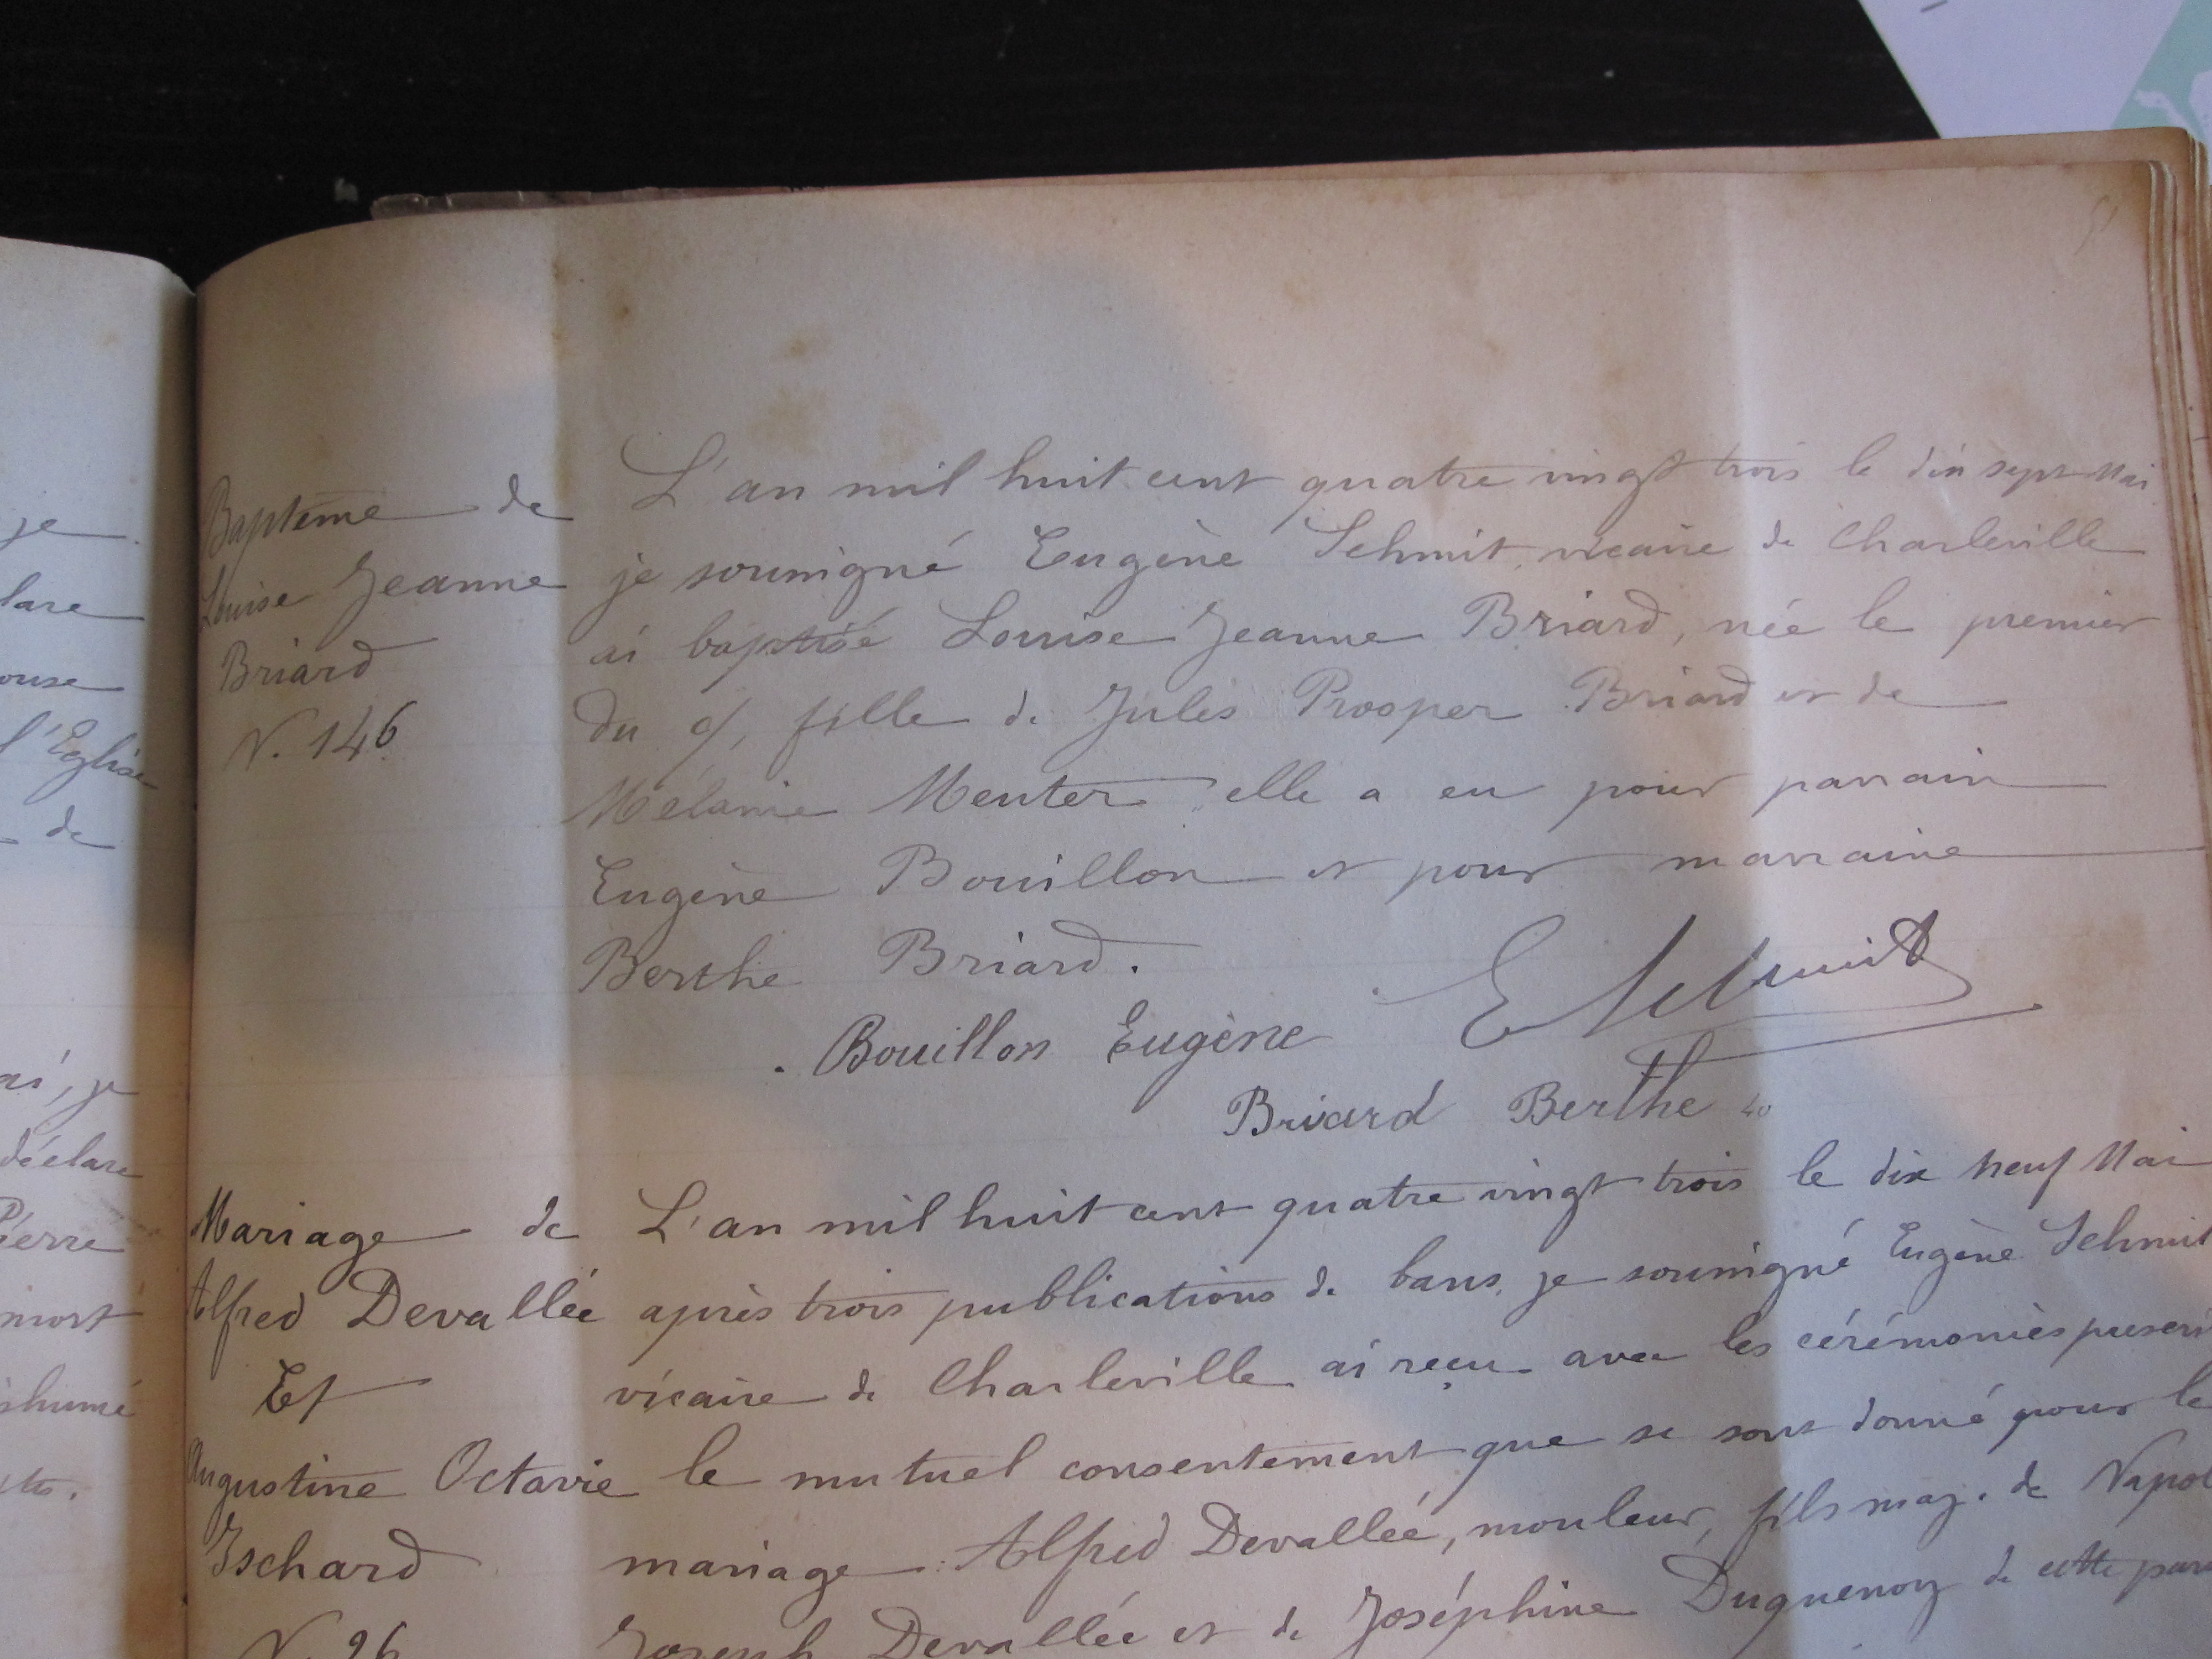 je
lare
ouse
l'Eglise
de
ai, je
déclare
Pierre
mort
inhumé
Baptême de
Louise Jeanne
Briard
N. 146
L'an mil huit cent quatre vingt trois le dix sept Mai
je soussigné Eugène Schmit, vicaire de Charleville
ai baptisé Louise Jeanne Briard, née le premier
du ct, fille de Jules Prosper Briard et de
Mélanie Menter elle a eu pour parrain
Eugène Bouillon et pour marraine
Berthe Briard.
E Schmit
Bouillon Eugène
Briard Berthe
Mariage de
Alfred Devallée
Et
Augustine Octavie
Ischard
N. 26
L'an mil huit cent quatre vingt trois le dix neuf Mai
après trois publications de bans, je soussigné Eugène Schmit
vicaire de Charleville ai reçu avec les cérémonies prescri
le mutuel consentement que se sont donné pour le
mariage : Alfred Devallée, mouleur, fils maj. de Napol
Joseph Devallée et de Joséphine Duquenoy de cette par